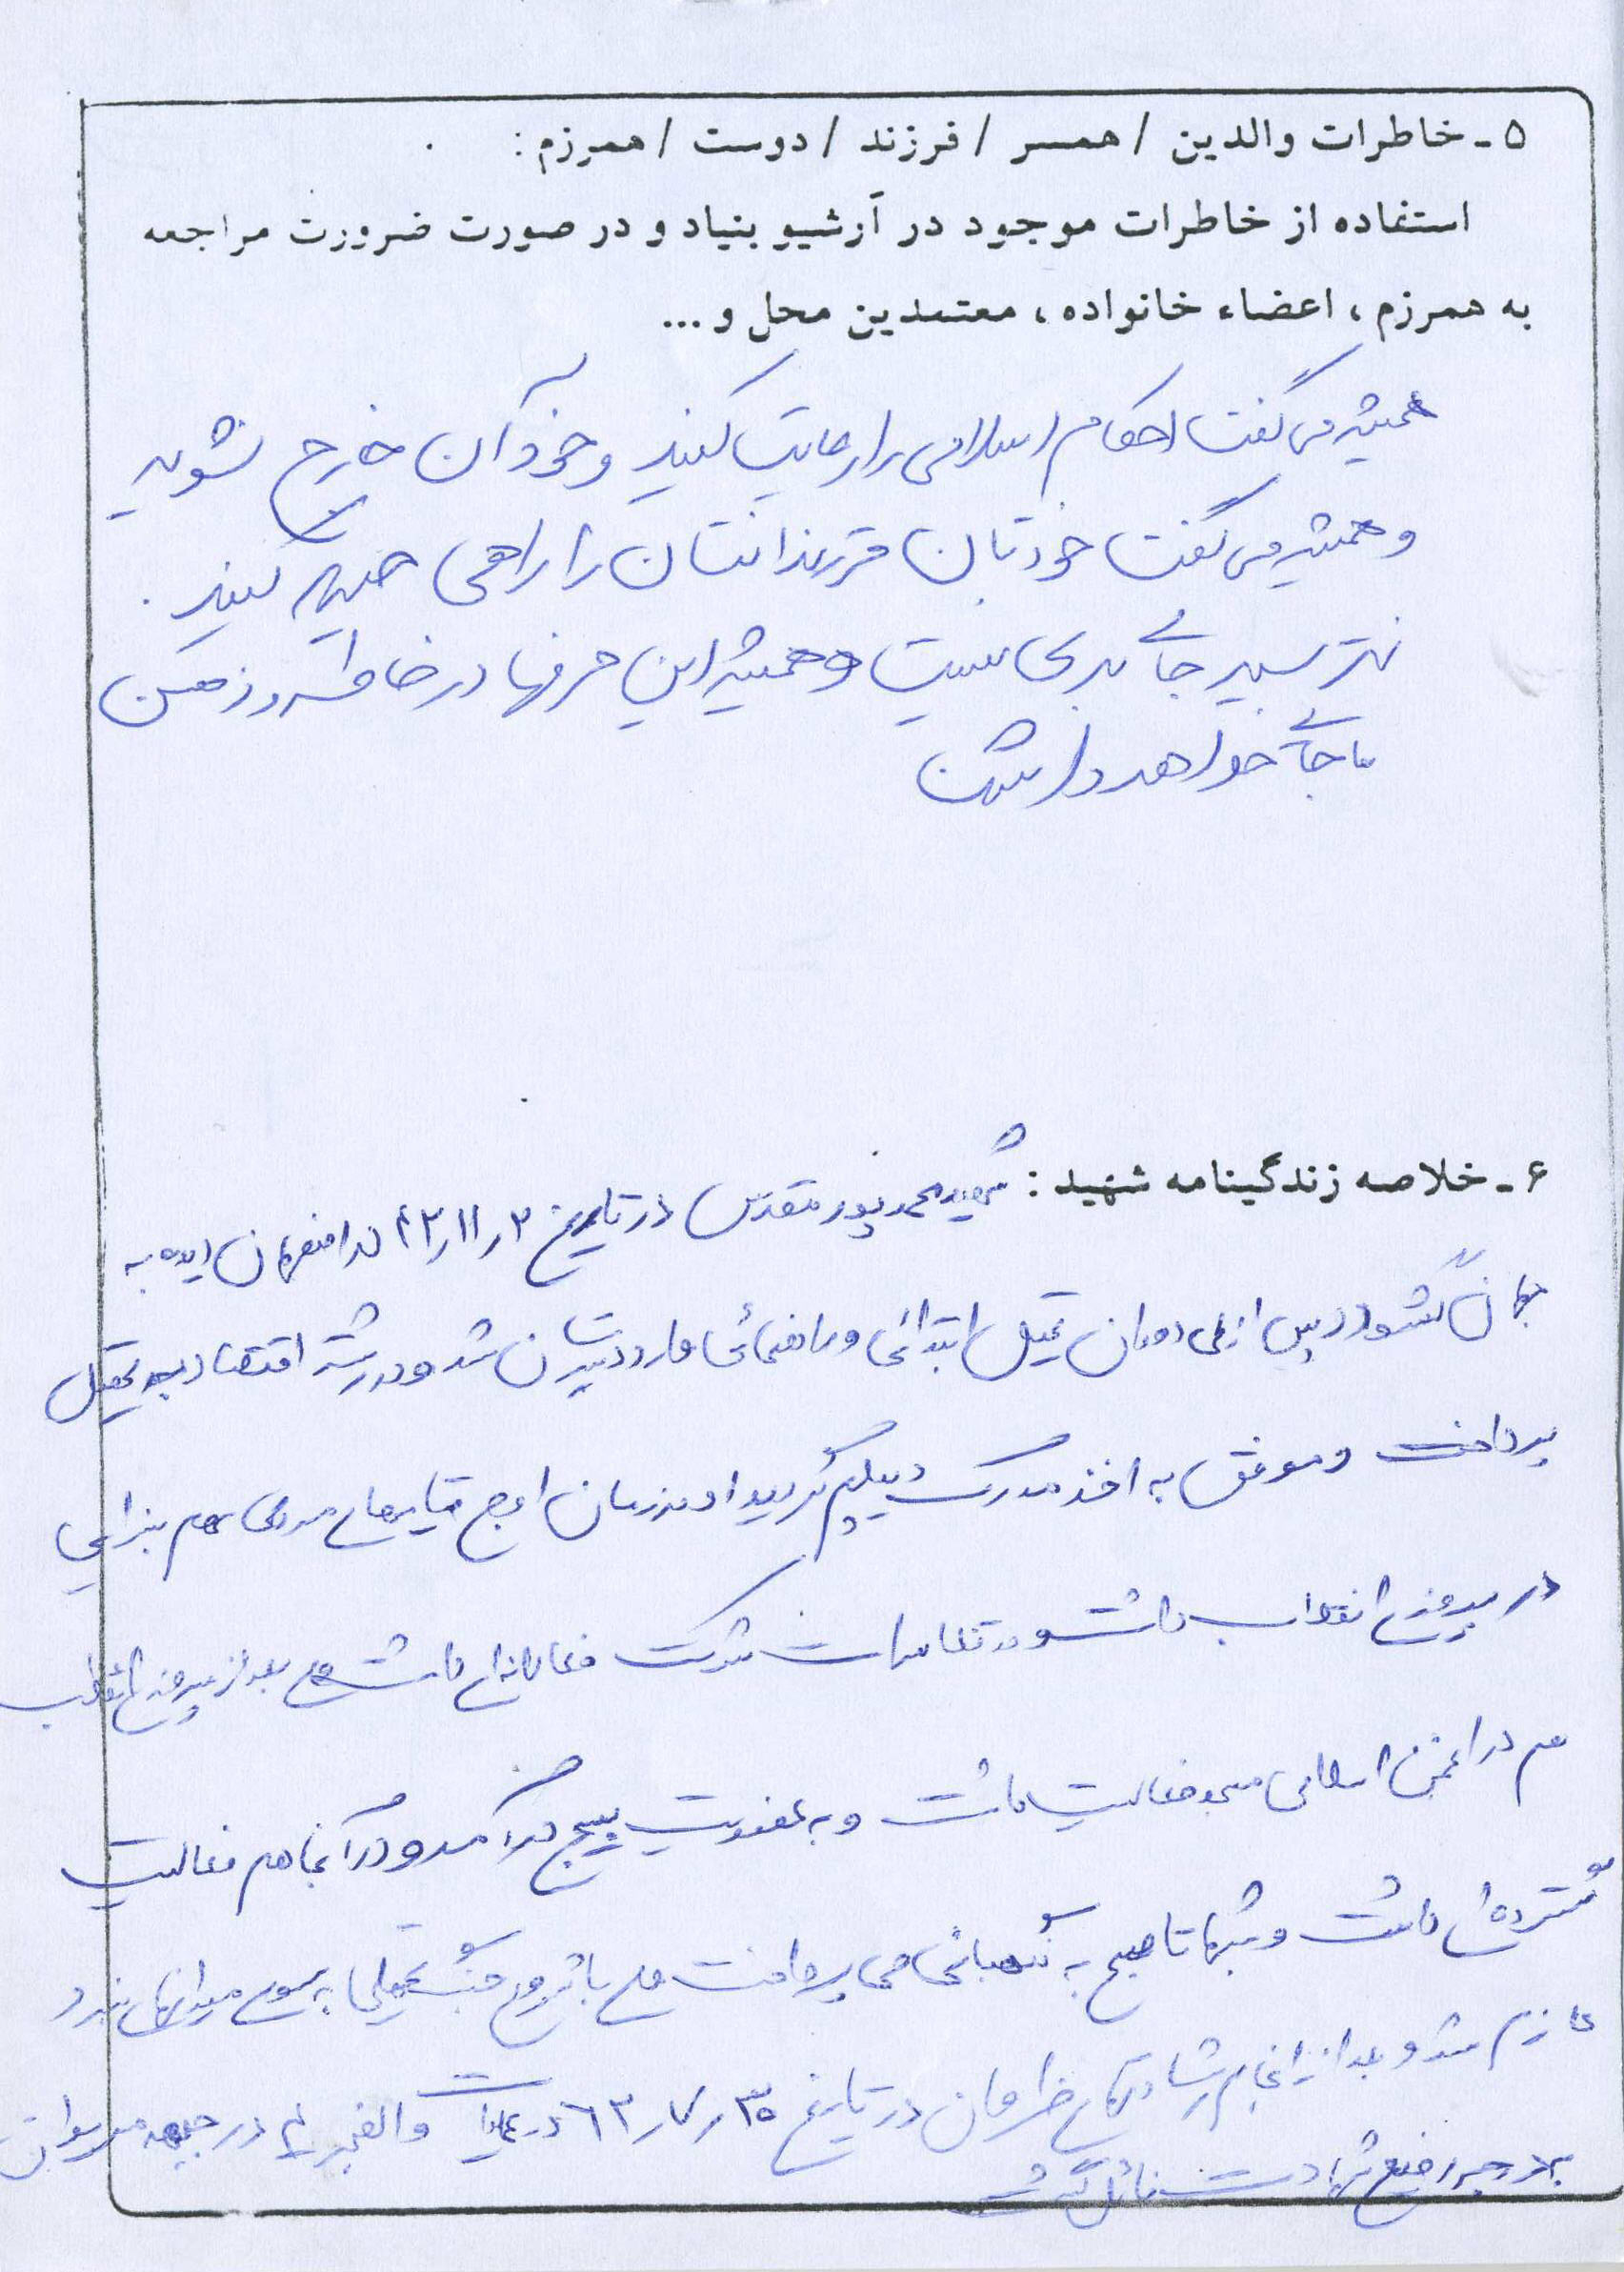 ۵ - خاطرات والدین / همسر / فرزند / دوست / همرزم :
استفاده از خاطرات موجود در آرشیو بنیاد و در صورت ضرورت مراجعه
به همرزم ، اعضاء خانواده ، معتمدین محل و ...
همیشه می گفت احکام اسلامی را رعایت کنید و خود آن خارج نشوید
و همیشه می گفت خودتان فرزندانتان را راهی جبهه کنید .
نترسید جای بدی نیست و همیشه این حرفها در خاطر و ذهن
ما جای خواهد داشت
۶ - خلاصه زندگینامه شهید : شهید محمد پور مقدس در تاریخ در اصفهان دیده به
جهان گشود و پس از طی دوران تحصیل ابتدائی و راهنمائی وارد دبیرستان شد و در رشته اقتصاد به تحصیل
پرداخت و موفق به اخذ مدرک دیپلم گردید او در زمان اوج قیامهای مردمی سهم بزرگی
در پیروزی انقلاب داشت و در تظاهرات شرکت فعالانه ای داشت بعد از پیروزی انقلاب
هم در انجمن اسلامی مسجد فعالیت داشت و به عضویت بسیج در آمد و در آنجا هم فعالیت
گسترده ای داشت و شبها تا صبح به نگهبانی می پرداخت با شروع جنگ تحمیلی به سوی میدانهای نبرد
عازم شد و بعد از انجام رشادتهای فراوان در تاریخ در عملیات والفجر ۴ در جبهه مریوان
به درجه رفیع شهادت نائل گشت